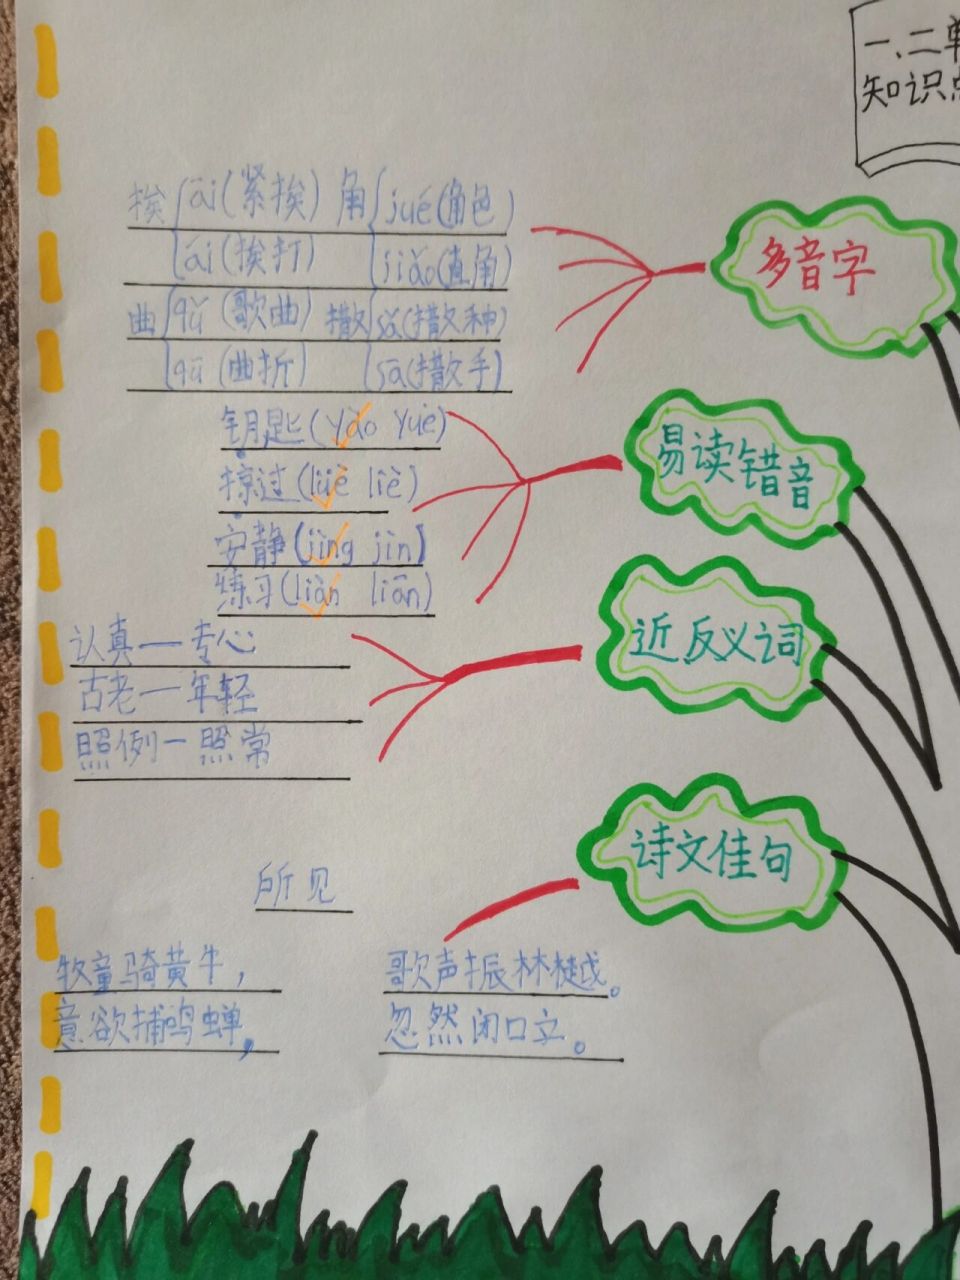 一、二单
知识点
多音字
挨 āi(紧挨) 角 jué(角色)
ái(挨打) jiǎo(直角)
曲 qǔ(歌曲) 撒 sǎ(撒种)
qū(曲折) sā(撒手)
易读错音
钥匙(yào yuè)
掠过(lüè liè)
安静(jìng jìn)
练习(liàn liān)
近反义词
认真—专心
古老—年轻
照例—照常
诗文佳句
所见
牧童骑黄牛,
歌声振林樾。
意欲捕鸣蝉,
忽然闭口立。